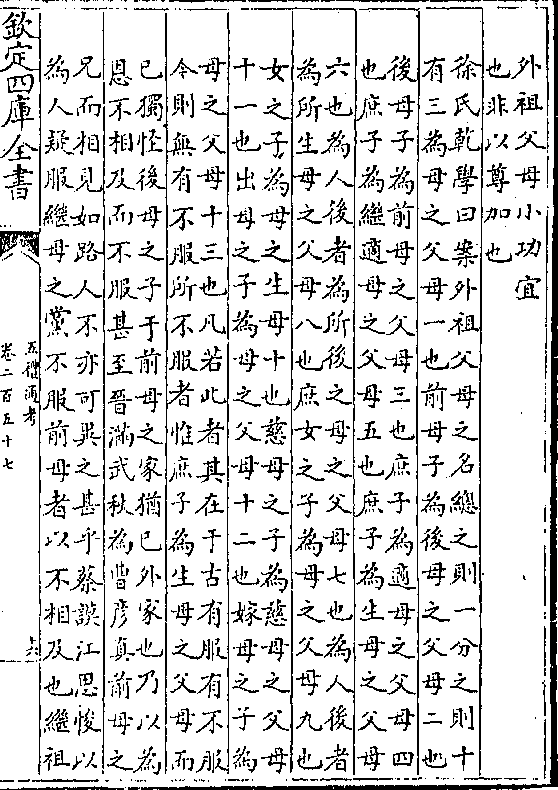 外祖父母小功宜
也非以尊加也
徐氏乾學曰案外祖父母之名總之則一分之則十
有三為母之父母一也前母子為後母之父母二也
後母子為前母之父母三也庶子為適母之父母四
也庶子為繼適母之父母五也庶子為生母之父母
六也為人後者為所後之母之父母七也為人後者
為所生母之父母八也庶女之子為母之父母九也
女之子為母之生母十也慈母之子為慈母之父母
十一也出母之子為母之父母十二也嫁母之子為
母之父母十三也凡若此者其在于古有服有不服
今則無有不服所不服者惟庶子為生母之父母而
已獨怪後母之子于前母之家猶已外家也乃以為
恩不相及而不服甚至晉滿武秋為曹彥真前母之
兄而相見如路人不亦可異之甚乎蔡謨江思悛以
為人疑服繼母之黨不服前母者以不相及也繼祖
欽定四庫全書
五禮通考
卷二百五十七